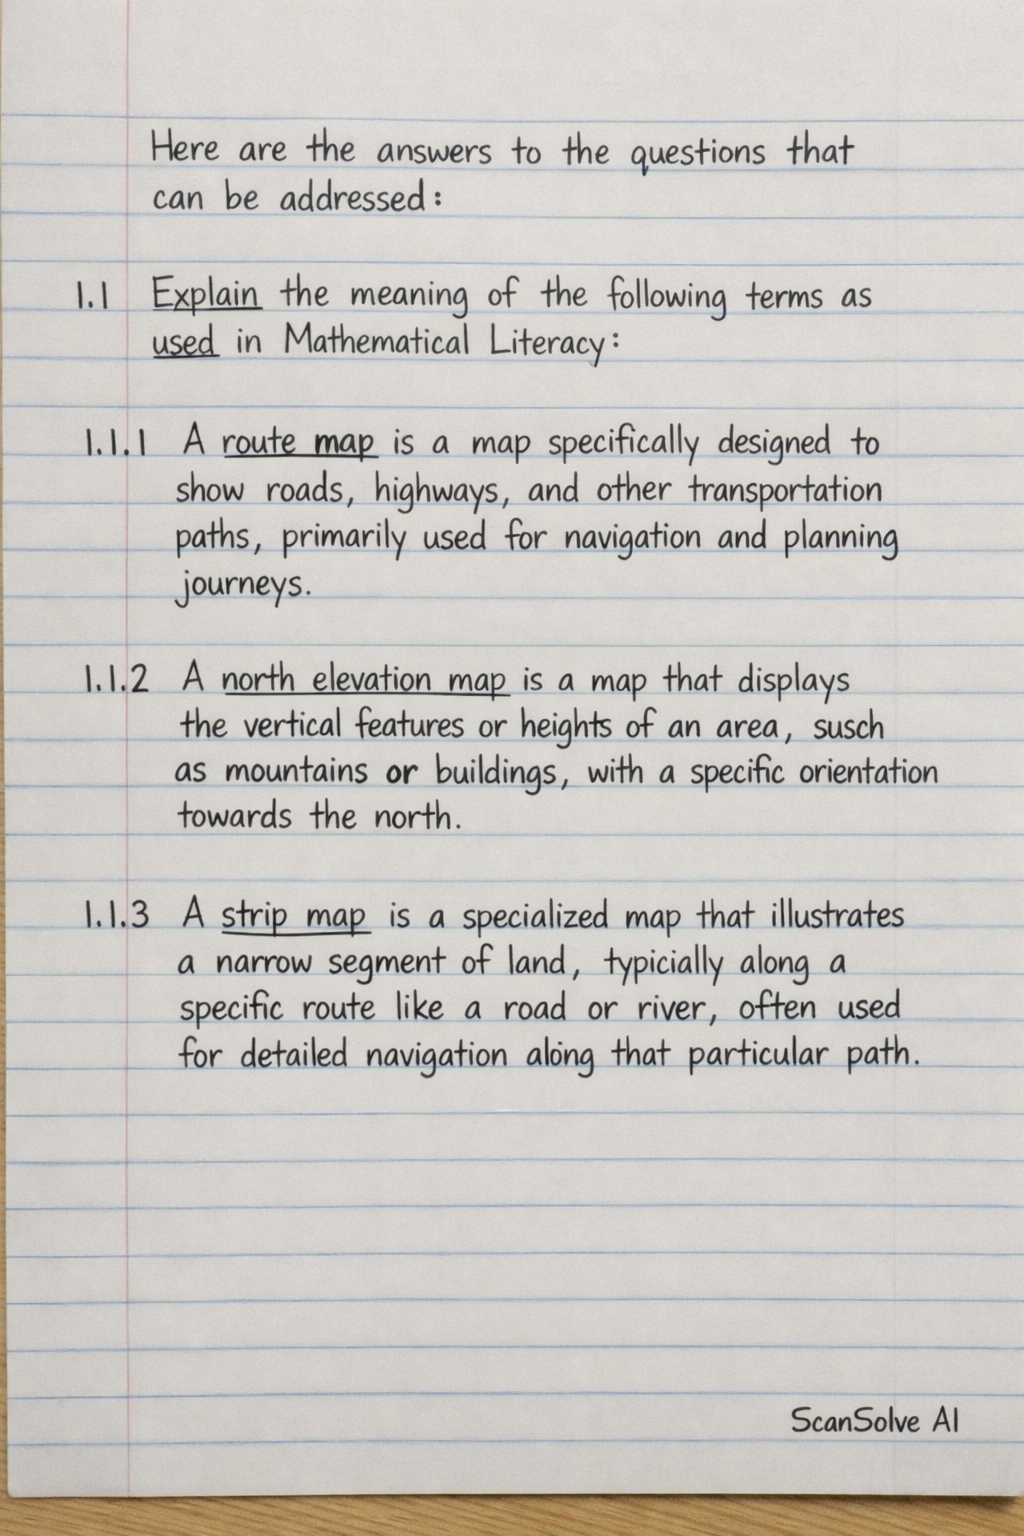 Here are the answers to the questions that
can be addressed:
1.1 Explain the meaning of the following terms as
used in Mathematical Literacy:
1.1.1 A route map is a map specifically designed to
show roads, highways, and other transportation
paths, primarily used for navigation and planning
journeys.
1.1.2 A north elevation map is a map that displays
the vertical features or heights of an area, susch
as mountains or buildings, with a specific orientation
towards the north.
1.1.3 A strip map is a specialized map that illustrates
a narrow segment of land, typicially along a
specific route like a road or river, often used
for detailed navigation along that particular path.
ScanSolve AI